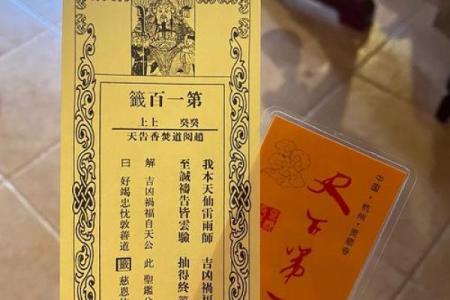 第一百籤
癸癸 上上
趙閱道焚香告天
我本天仙雷雨師 吉凶禍福
至誠禱告皆靈驗 抽得終
解 吉凶禍福自天公 此 聖鑑
曰 好竭忠忱敦善道 籤 慈恩
中国·杭州·灵顺寺
天下第